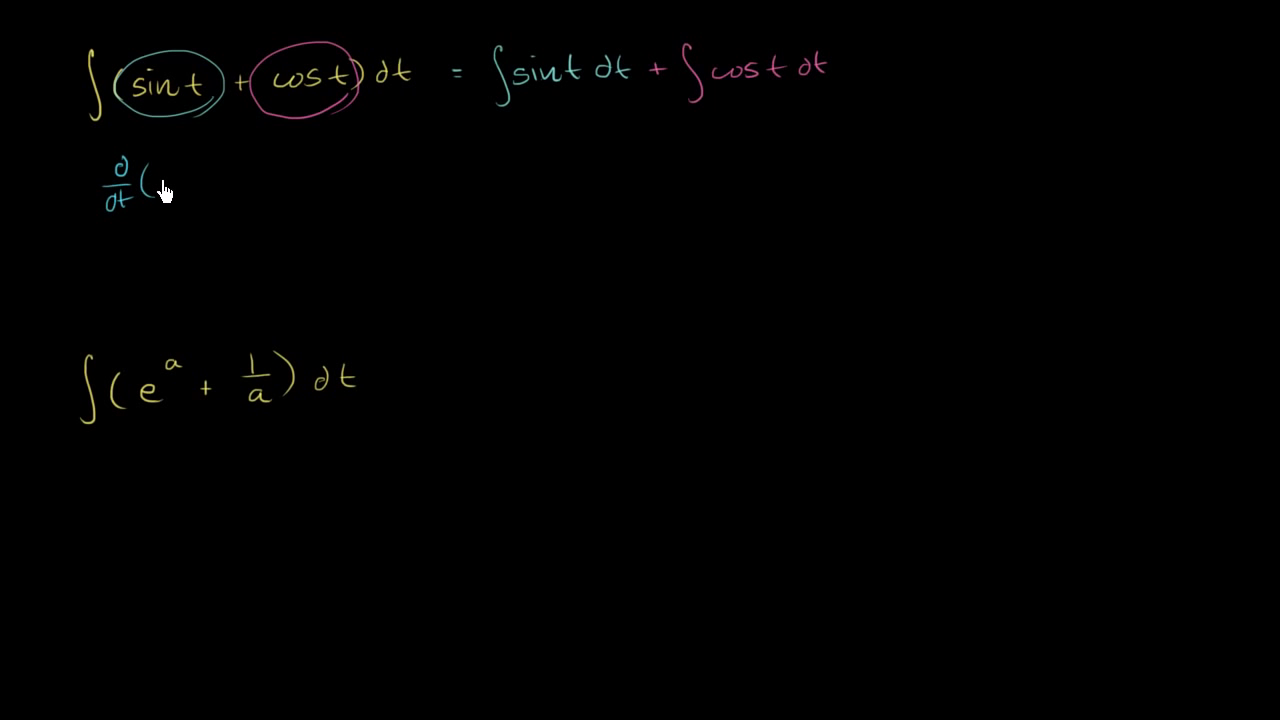 ∫(sin t + cos t) dt = ∫ sin t dt + ∫ cos t dt
d/dt (
∫(e^a + 1/a) dt